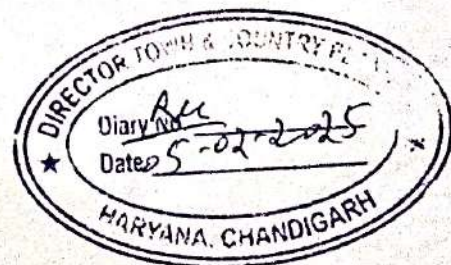 DIRECTOR TOWN & COUNTRY
Diary No
Date 05-02-2025
HARYANA, CHANDIGARH